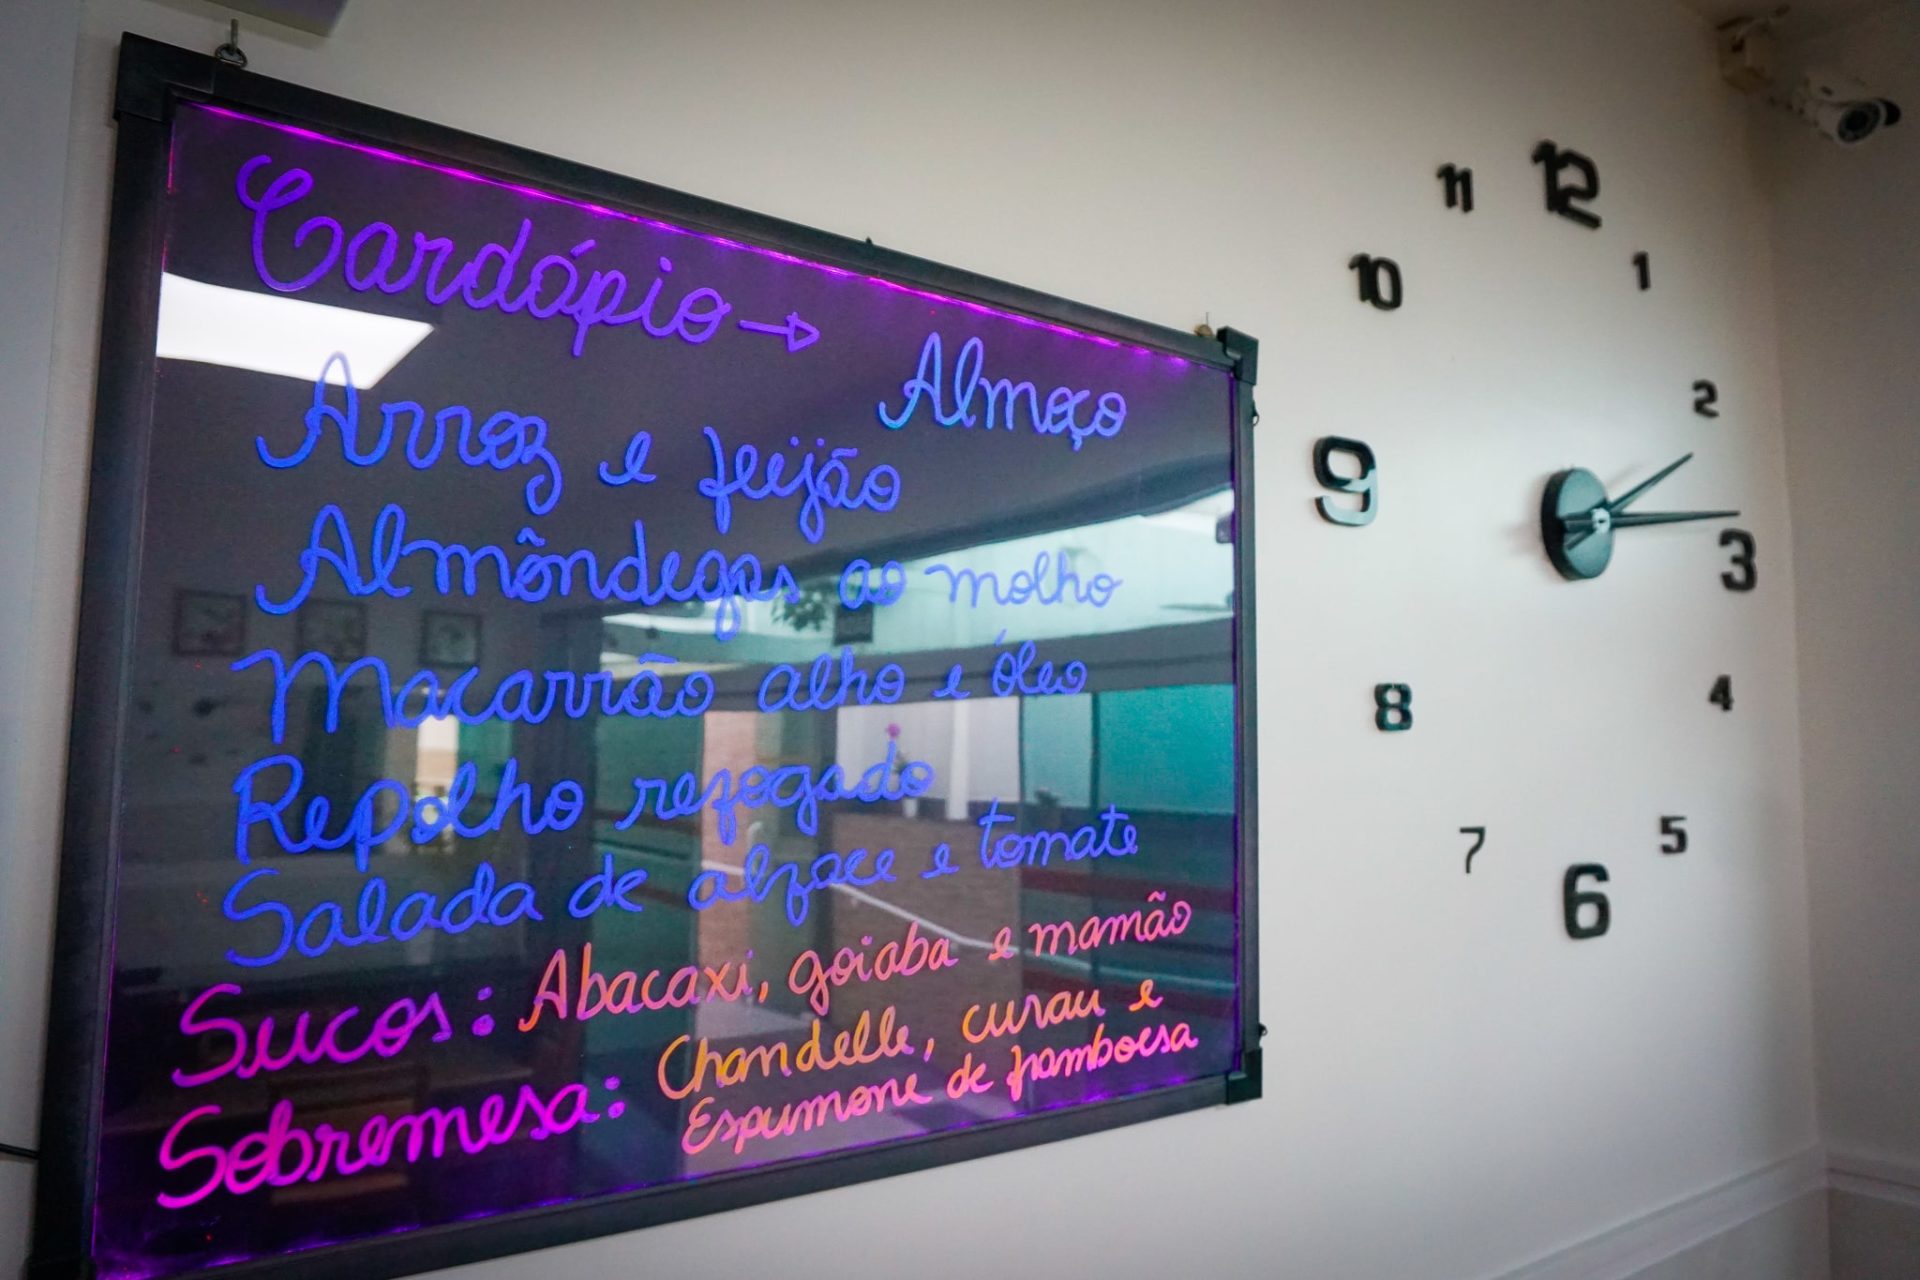 Cardápio →
Almoço
Arroz e feijão
Almôndegas ao molho
Macarrão alho e óleo
Repolho refogado
Salada de alface e tomate
Sucos: Abacaxi, goiaba e mamão
Sobremesa: Chandelle, curau e
Espumone de framboesa
12
11
1
10
2
9
3
8
4
7
5
6